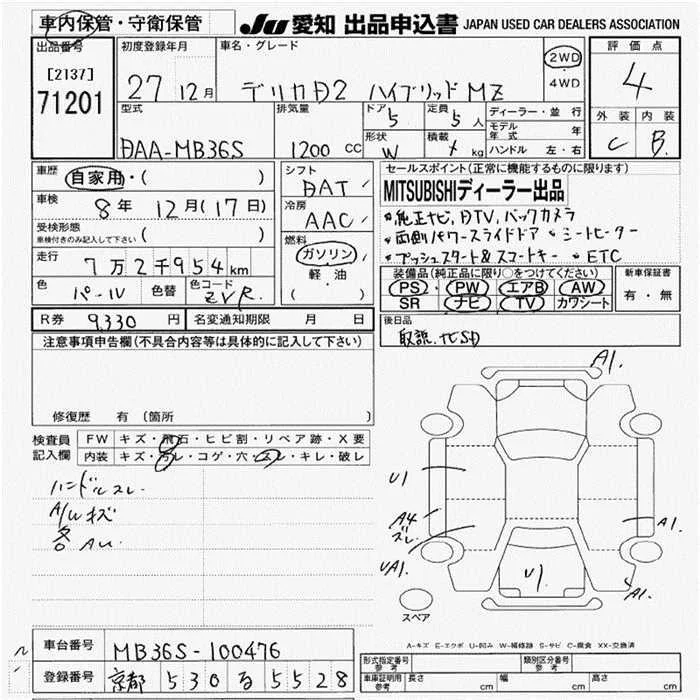 車内保管・守衛保管
JU 愛知 出品申込書 JAPAN USED CAR DEALERS ASSOCIATION
出品番号
[2137]
71201
初度登録年月
27 12月
車名・グレード
デリカD2 ハイブリッドMZ
2WD
・
4WD
評価点
4
外装 内装
C B
型式
DAA-MB36S
排気量
1200 CC
ドア 5
定員 5 人
形状 W
積載 kg
ディーラー・並行
モデル年式 年
ハンドル 左・右
車歴
自家用・( )
車検
8年 12月(17日)
受検形態
車検付きのみ記入して下さい ( )
走行
7万2千954km
色
パール
色替
色コード
ZVR
シフト
DAT
冷房
AAC
燃料
ガソリン
軽・油
( )
セールスポイント(正常に機能するものに限ります)
MITSUBISHIディーラー出品
純正ナビ、DTV、バックカメラ
両側パワースライドドア シートヒーター
プッシュスタート&スマートキー ETC
装備品(純正品に限り○をつけてください)
PS・PW・エアB・AW
SR ナビ・TV カワシート
新車保証書
有・無
R券 9,330 円
名変通知期限 月 日
後日品
取説、ナビSD
注意事項申告欄(不具合内容等は具体的に記入して下さい)
修復歴 有 〔箇所 〕
検査員
記入欄
FW キズ・飛石・ヒビ割・リペア跡・X要
内装 キズ・汚レ・コゲ・穴・スレ・キレ・破レ
ハンドルスレ
A/Wキズ
各AU
A1.
U1
A4
ズレ
UA1.
U1
A1.
A1.
スペア
A-キズ E-エクボ U-凹み W-補修跡 S-サビ C-腐食 XX-交換済
車台番号 MB36S-100476
登録番号 京都 530 る 5528
形式指定番号
参考
類別区分番号
参考
車庫証明用
参考
長さ cm
幅 cm
高さ cm